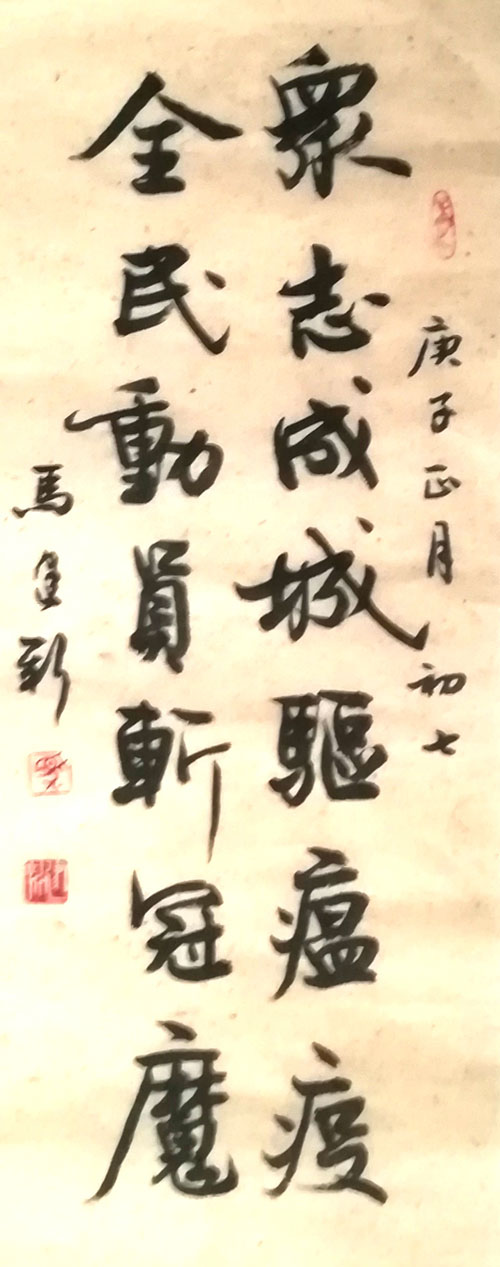 庚子正月初七
眾志成城驅瘟疫
全民動員斬冠魔
馬建新